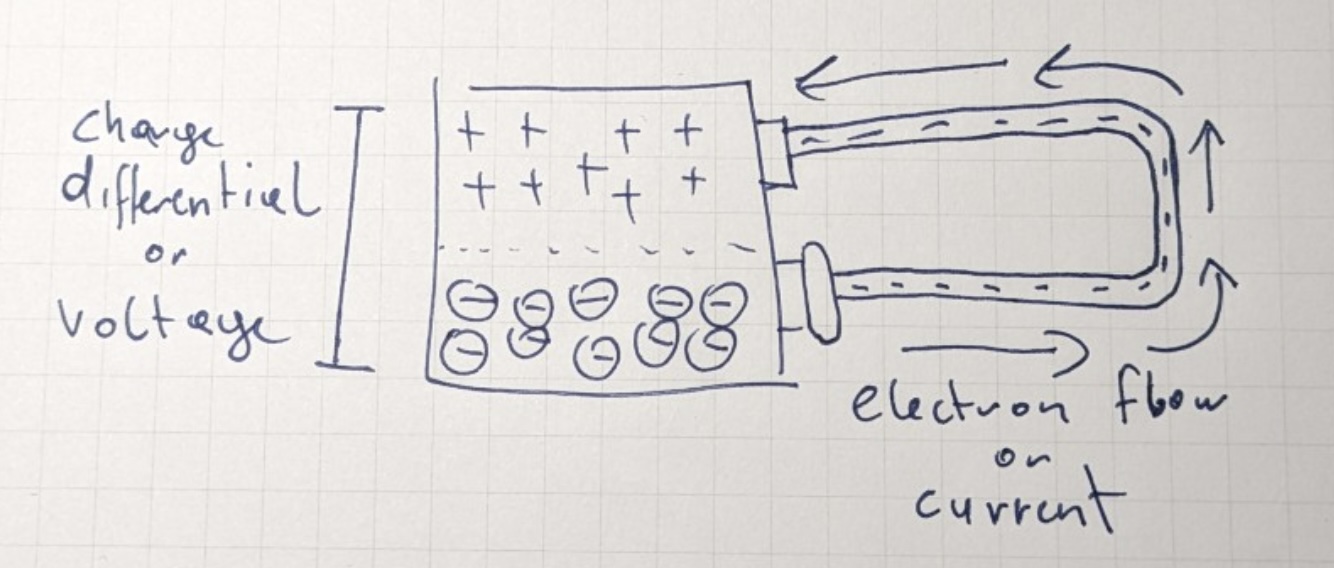 charge
differential
or
voltage
+ + + +
+ + + + +
- - - - - - -
⊖ ⊖ ⊖ ⊖ ⊖
⊖ ⊖ ⊖ ⊖ ⊖
electron flow
or
current